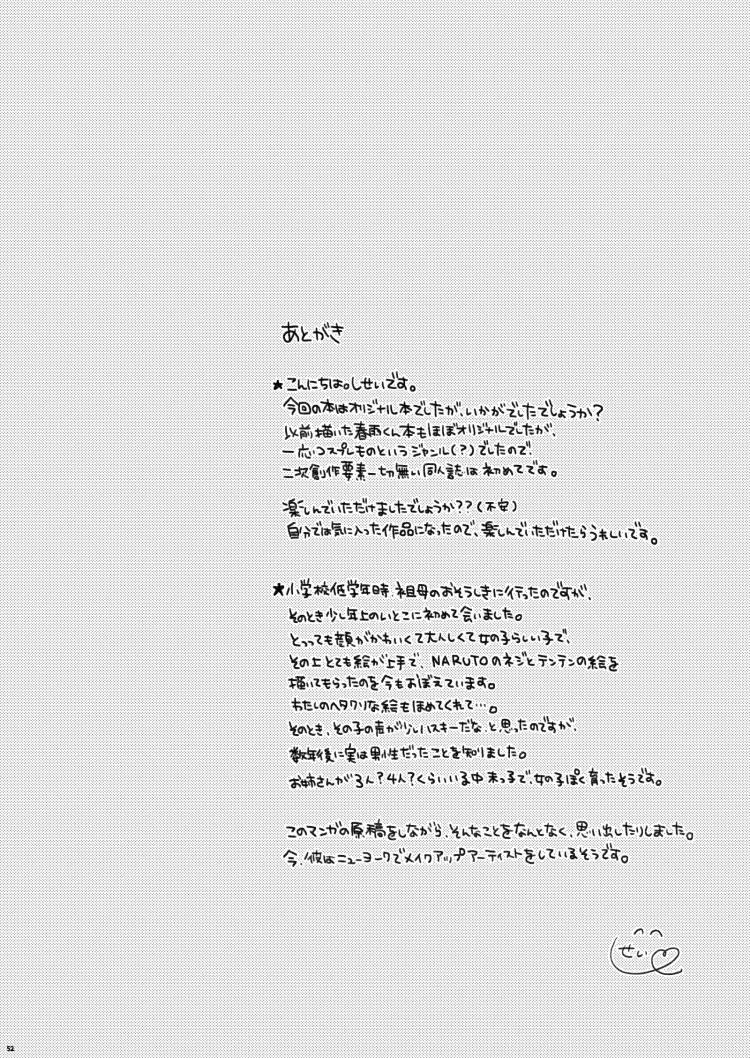 あとがき
★こんにちは。しせいです。
今回の本はオリジナル本でしたが、いかがでしたでしょうか?
以前描いた春雨くん本もほぼオリジナルでしたが、
一応コスプレものというジャンル(?)でしたので、
二次創作要素一切無い同人誌は初めてです。
楽しんでいただけましたでしょうか??(不安)
自分では気に入った作品になったので、楽しんでいただけたらうれしいです。
★小学校低学年時、祖母のおそうしきに行ったのですが、
そのとき少し年上のいとこに初めて会いました。
とっっても顔がかわいくて大人しくて女の子らしい子で、
その上とても絵が上手で、NARUTOのネジとテンテンの絵を
描いてもらったのを今もおぼえています。
わたしのヘタクソな絵もほめてくれて…。
そのとき、その子の声が少しハスキーだな、と思ったのですが、
数年後に実は男性だったことを知りました。
お姉さんが3人?4人?くらいいる中、末っ子で、女の子ぽく育ったそうです。
このマンガの原稿をしながら、そんなことをなんとなく、思い出したりしました。
今、彼はニューヨークでメイクアップアーティストをしているそうです。
しせい
52